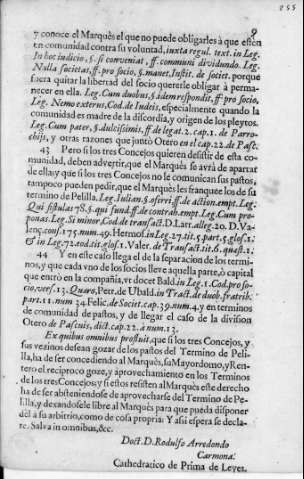 8
255
y conoce el Marquès el que no puede obligarles à que estèn
en comunidad contra su voluntad, iuxta regul. text. in Leg.
In hoc iudicio, 5. si conveniat, ff. communi dividundo. Leg.
Nulla societas, ff. pro socio, §. manet, Instit. de societ. porque
fuera quitar la libertad del socio quererle obligar à perma-
necer en ella. Leg. Cum duobus, §. idem respondit, ff. pro socio,
Leg. Nemo externus, Cod. de Iudeis, especialmente quando la
comunidad es madre de la discordia, y origen de los pleytos.
Leg. Cum pater, §. dulcissimis, ff. de legat. 2. cap. 1. de Parro-
chijs, y otras razones que juntò Otero en el cap. 22. de Pasc.
43 Pero si los tres Concejos quieren desistir de esta co-
munidad, deben advertir, que el Marquès se avrà de apartar
de ella, y que si los tres Concejos no le comunican sus pastos,
tampoco pueden pedir, que el Marquès les franquee los de su
termino de Pelilla. Leg. Iulian. §. ff. de action. empt. Leg.
Qui fistulas 78. §. qui fund. ff. de contrah. empt. Leg. Cum pro-
ponas. Leg. Si minor, Cod. de transact. D. Larr. alleg. 20. D. Va-
lenç. conf. 175. num. 49. Hermos. in Leg. 27. tit. 5. part. 5. glos. 1.
& in Leg. 72. eod. tit. glos. 1. Valer. de Transact. tit. 6. quæst. 1.
44 Y en este caso llega el de la separacion de los termi-
nos, y que cada vno de los socios lleve aquella parte, ò capital
que entrò en la compañia, vt docet Bald. in Leg. 1. Cod. pro so-
cio, vers. 13. Quæro, Petr. de Vbald. in Tract. de duob. fratrib.
part. 11. num 34. Felic. de Societ. cap. 39. num. 4. y en terminos
de comunidad de pastos, y de llegar el caso de la division
Otero de Pascuis, dict. cap. 22. à num. 13.
Ex quibus omnibus prostuit, que si los tres Concejos, y
sus vezinos desean gozar de los pastos del Termino de Peli-
lla, ha de ser concediendo al Marquès, su Mayordomo, y Ren-
tero el reciproco goze, y aprovechamiento en los Terminos
de los tres Concejos; y si estos resisten al Marquès este derecho
ha de ser absteniendose de aprovecharse del Termino de Pe-
lilla, y dexandosele libre al Marquès para que pueda disponer
dèl à su arbitrio, como de cosa propria: Y assi espera se decla-
re. Salva in omnibus, &c.
Doct. D. Rodulfo Arredondo
Carmona.
Cathedratico de Prima de Leyes.